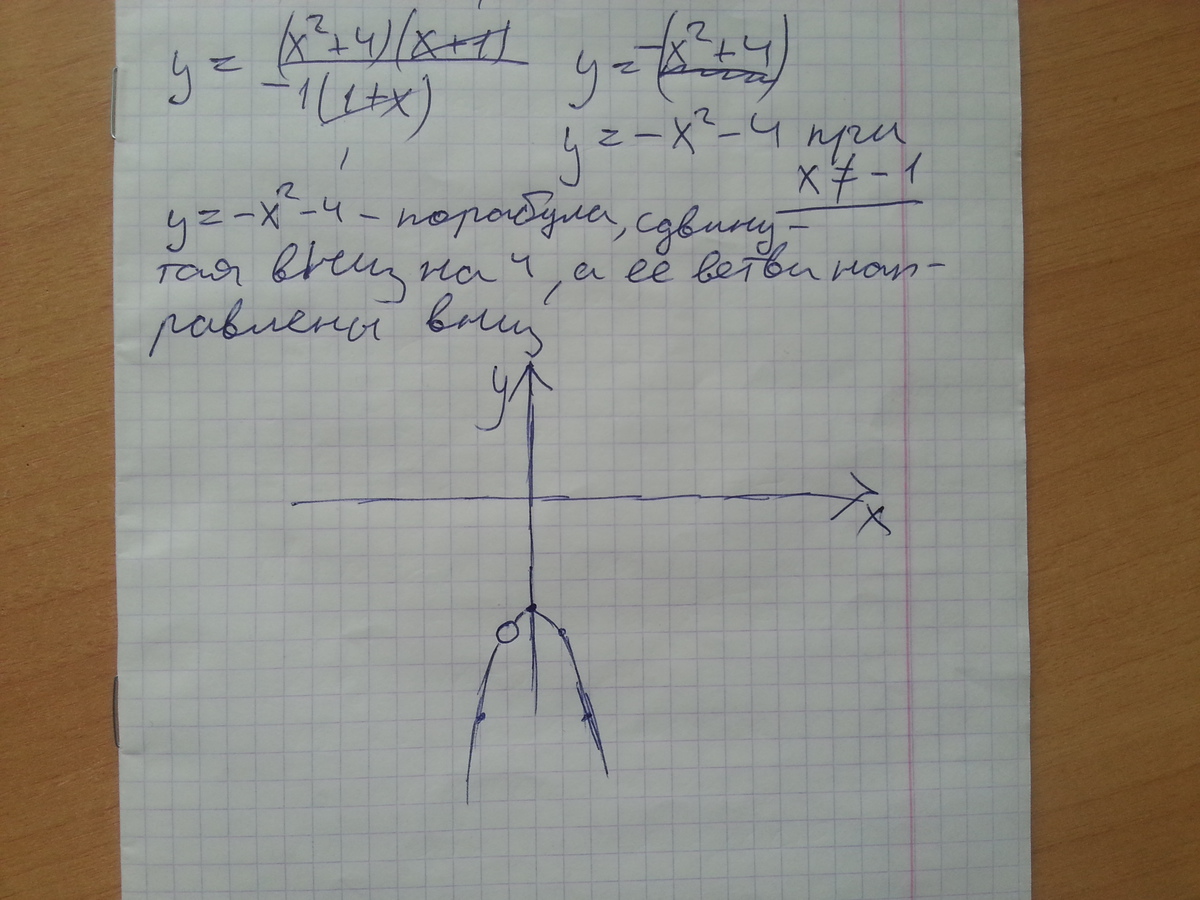 y = (x²+4)(x+1) / -1(1+x)
y = -(x²+4)
y = -x²-4 при
x ≠ -1
y = -x²-4 - порабула, сдвину-
тая вниз на 4, а ее ветви нап-
равлены вниз
y
x